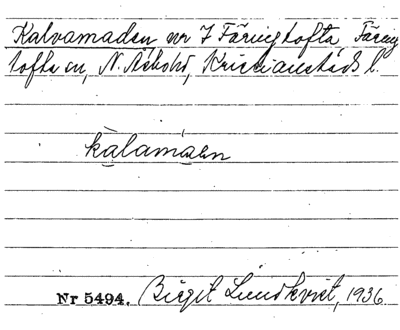 Kalvamaden nr 7 Färingtofta, Färing
tofta sn, N. Åsbohd, Kristianstads l.
kalamaen
Nr 5494. Birgit Lundkvist, 1936.